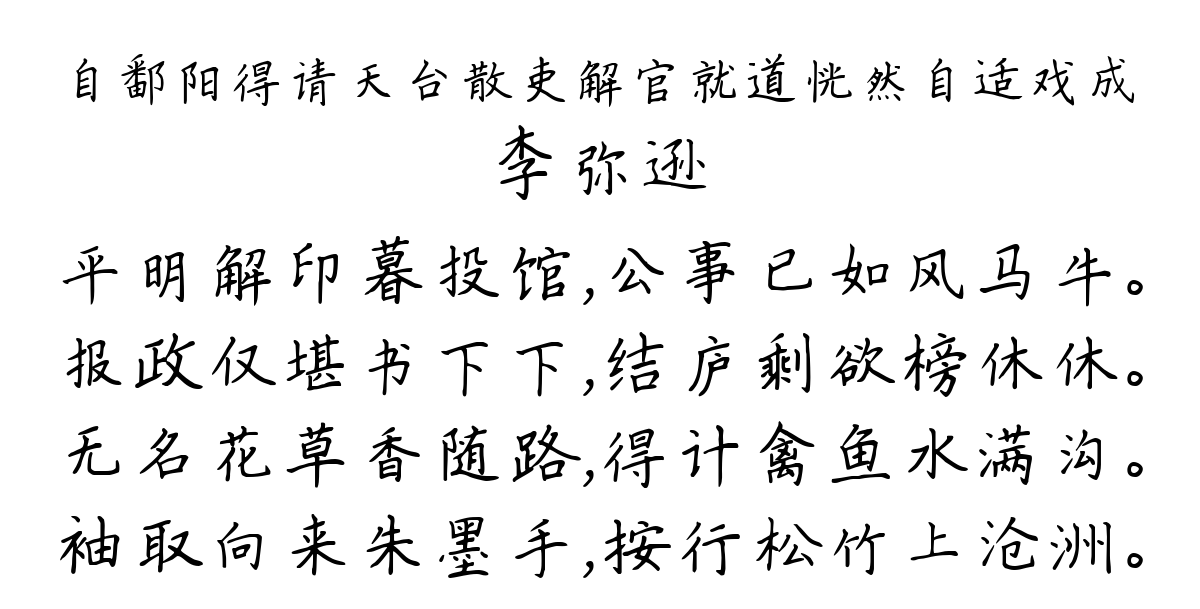 自鄱阳得请天台散吏解官就道恍然自适戏成
李弥逊
平明解印暮投馆,公事已如风马牛。
报政仅堪书下下,结庐剩欲榜休休。
无名花草香随路,得计禽鱼水满沟。
袖取向来朱墨手,按行松竹上沧洲。